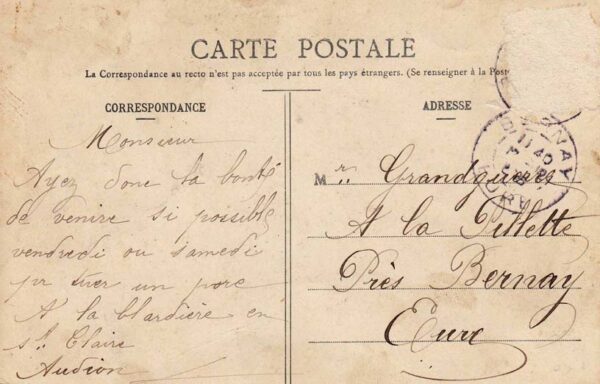 CARTE POSTALE
La Correspondance au recto n'est pas acceptée par tous les pays étrangers. (Se renseigner à la Post
CORRESPONDANCE
Monsieur
Ayez donc la bonté
de venire si possible
vendredi ou samedi
pr tuer un porc
A la blardière en
st Claire
Audion
ADRESSE
M r. Grandguères
A la Pillette
Près Bernay
Eure